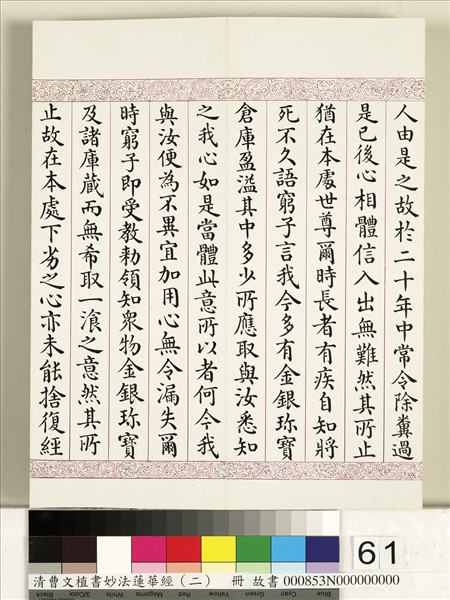 人由是之故於二十年中常令除糞過
是已後心相體信入出無難然其所止
猶在本處世尊爾時長者有疾自知將
死不久語窮子言我今多有金銀珍寶
倉庫盈溢其中多少所應取與汝悉知
之我心如是當體此意所以者何今我
與汝便為不異宜加用心無令漏失爾
時窮子即受教勅領知衆物金銀珎寶
及諸庫藏而無希取一湌之意然其所
止故在本處下劣之心亦未能捨復經
61
清曹文植書妙法蓮華經(二) 冊 故書 000853N000000000
Black 3/Color White Magenta Red Yellow Green Cyan Blue